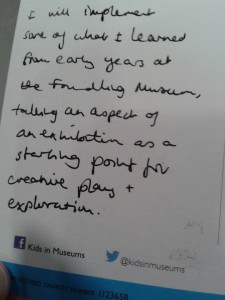 I will implement
some of what I learned
from early years at
the Foundling Museum,
taking an aspect of
an exhibition as a
starting point for
creative play +
exploration.
Kids in Museums
@kidsinmuseums
CHARITY NUMBER 1123658